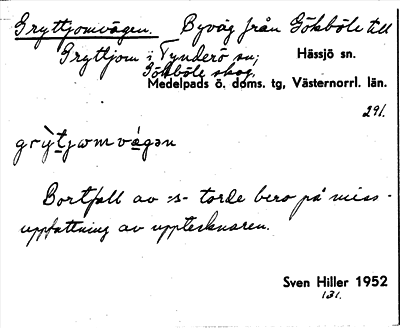 Gryttjomvägen. Byväg från Gökböle till
Gryttjom i Tynderö sn; Hässjö sn.
Gökböle skog.
Medelpads ö. doms. tg, Västernorrl. län.
291.
grỳt̠jωmvágən
Bortfall av -s- torde bero på miss-
uppfattning av upptecknaren.
Sven Hiller 1952
131.